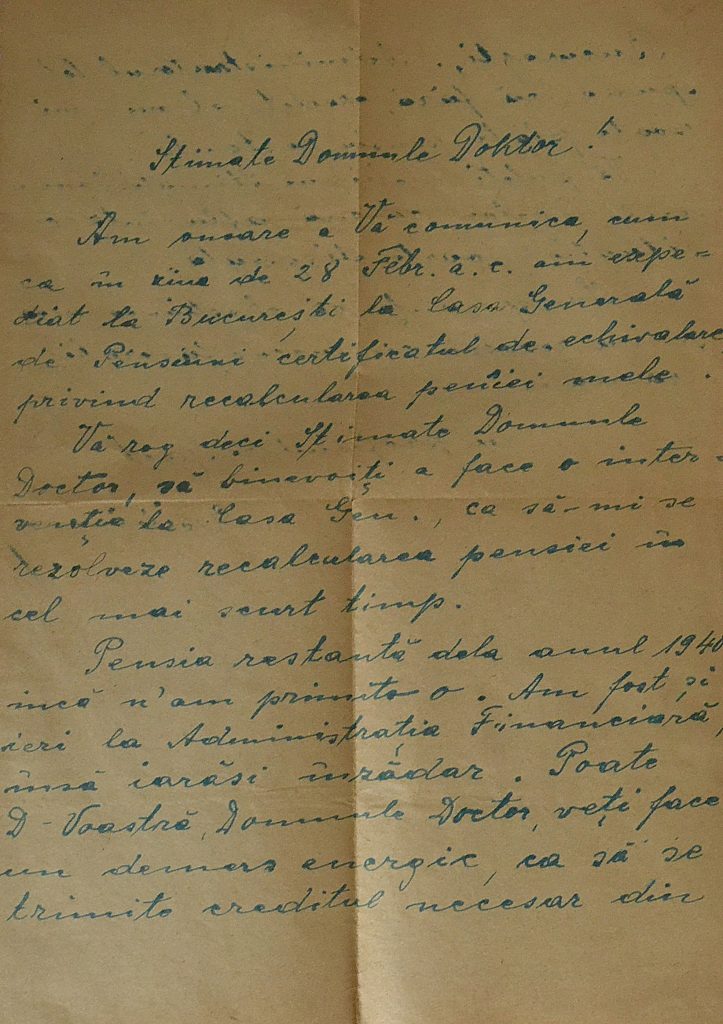 Stimate Domnule Doktor!
Am onoare a Vă comunica, cum
ca în ziua de 28 Febr. a.c. am expe=
diat la București la Casa Generală
de Pensiuni certificatul de echivalare
privind recalcularea pensiei mele.
Vă rog deci Stimate Domnule
Doctor, să binevoiți a face o inter=
venția la Casa Gen., ca să-mi se
rezolveze recalcularea pensiei în
cel mai scurt timp.
Pensia restantă dela anul 1940
incă n'am primit-o. Am fost și
ieri la Administrația Financiară,
însă iarăsi înzădar. Poate
D-Voastră, Domnule Doctor, veți face
un demers energic, ca să se
trimite creditul necesar din